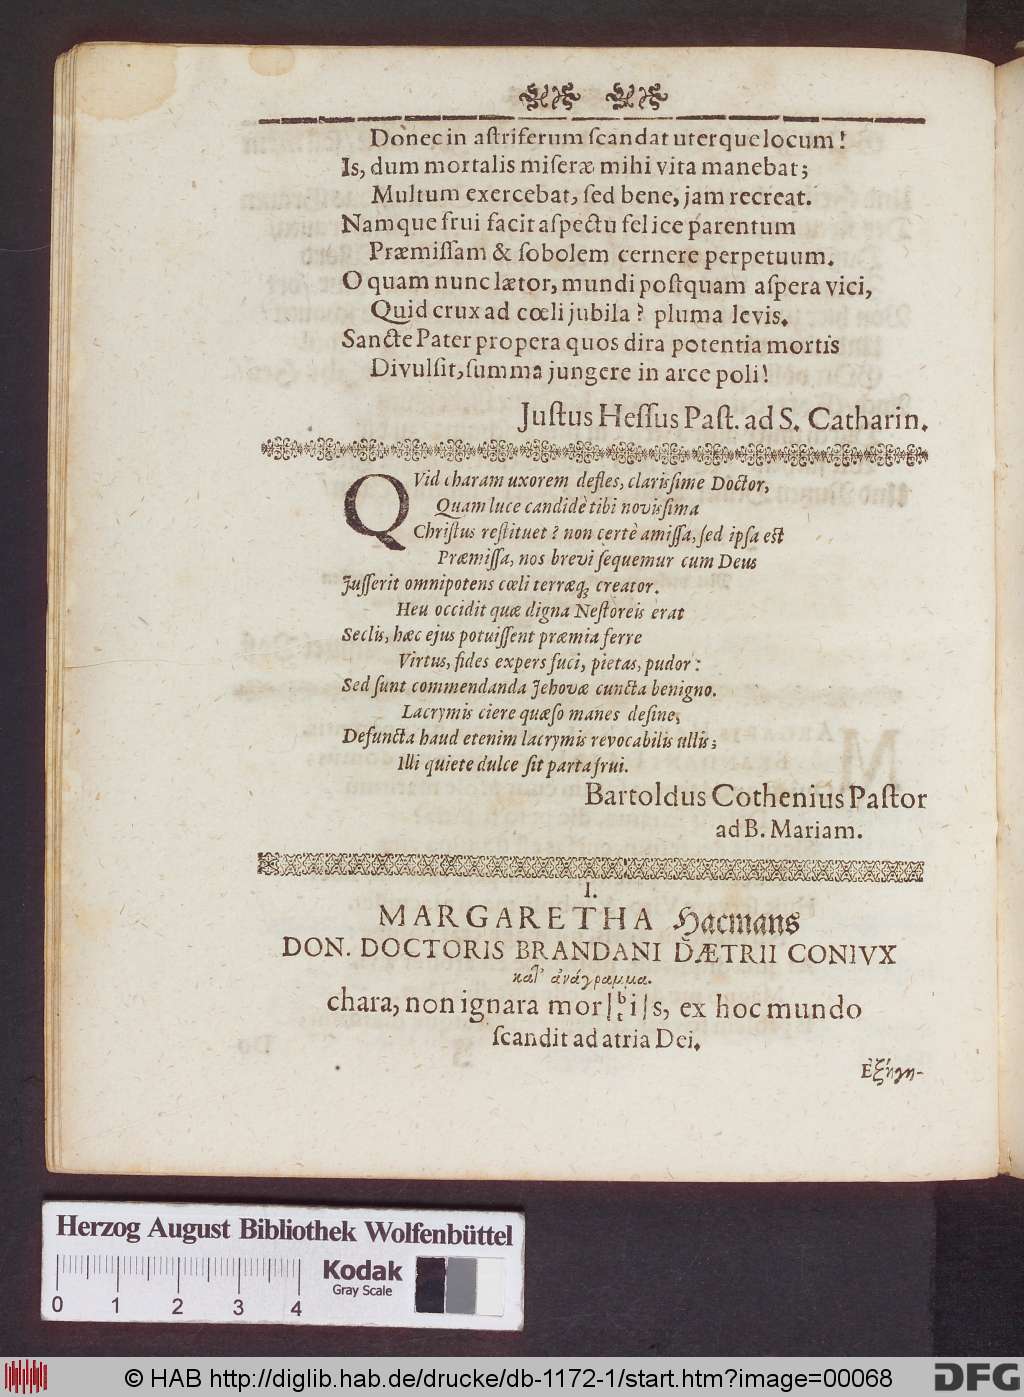 Donec in aſtriferum ſcandat uterque locum!
Is, dum mortalis miſeræ mihi vita manebat;
Multum exercebat, ſed bene, jam recreat.
Namque frui facit aſpectu felice parentum
Præmiſſam & ſobolem cernere perpetuum.
O quam nunc lætor, mundi poſtquam aſpera vici,
Quid crux ad cœli jubila? pluma levis.
Sancte Pater propera quos dira potentia mortis
Divulſit, ſumma jungere in arce poli!
Juſtus Heſſus Paſt. ad S. Catharin.
QVid charam uxorem defles, clarisſime Doctor,
Quam luce candidè tibi novisſima
Chriſtus reſtituet? non certè amiſſa, ſed ipſa eſt
Præmiſſa, nos brevi ſequemur cum Deus
Juſſerit omnipotens cœli terræq; creator.
Heu occidit quæ digna Neſtoreis erat
Seclis, hæc ejus potuiſſent præmia ferre
Virtus, fides expers fuci, pietas, pudor:
Sed ſunt commendanda Jehovæ cuncta benigno.
Lacrymis ciere quæſo manes deſine,
Defuncta haud etenim lacrymis revocabilis ullis;
Illi quiete dulce ſit parta frui.
Bartoldus Cothenius Paſtor
ad B. Mariam.
I.
MARGARETHA Hacmans
DON. DOCTORIS BRANDANI DÆTRII CONIVX
κατ' ἀνάγραμμα.
chara, non ignara mor|b/t i|s, ex hoc mundo
ſcandit ad atria Dei.
Ἐξήγη-
Herzog August Bibliothek Wolfenbüttel
Kodak
Gray Scale
0 1 2 3 4
© HAB http://diglib.hab.de/drucke/db-1172-1/start.htm?image=00068
DFG